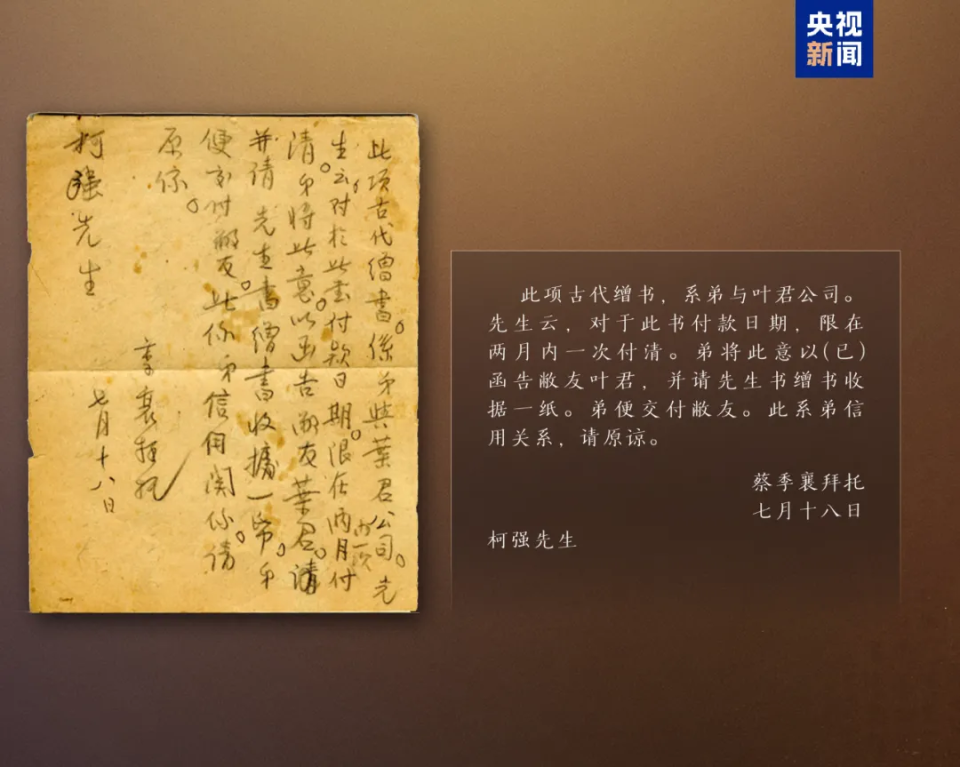 央视
新闻
此项古代缯書。係弟與葉君公司。先
生云。对於此書付款日期。限在兩月内一次付
清。弟将此意以函告敝友葉君。請
并請 先生書缯書收據一帋。弟
便交付敝友。此係弟信用関係。请
原谅。
季襄拜托
七月十八日
柯强先生
此项古代缯书，系弟与叶君公司。
先生云，对于此书付款日期，限在
两月内一次付清。弟将此意以(已)
函告敝友叶君，并请先生书缯书收
据一纸。弟便交付敝友。此系弟信
用关系，请原谅。
蔡季襄拜托
七月十八日
柯强先生